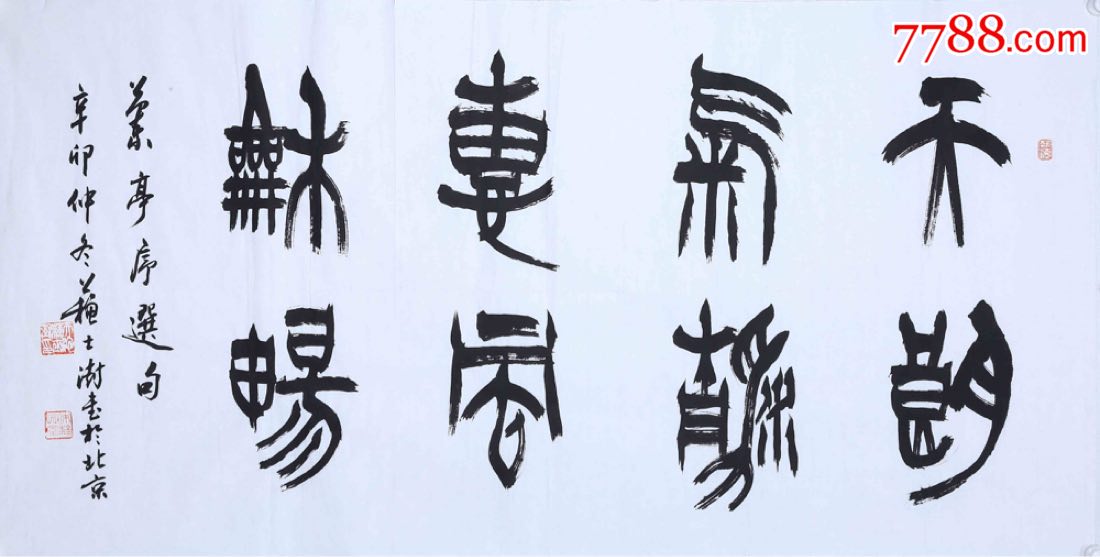 7788.com
天朗
氣清
惠風
龢暢
蘭亭序選句
辛卯仲冬蘇士澍書於北京